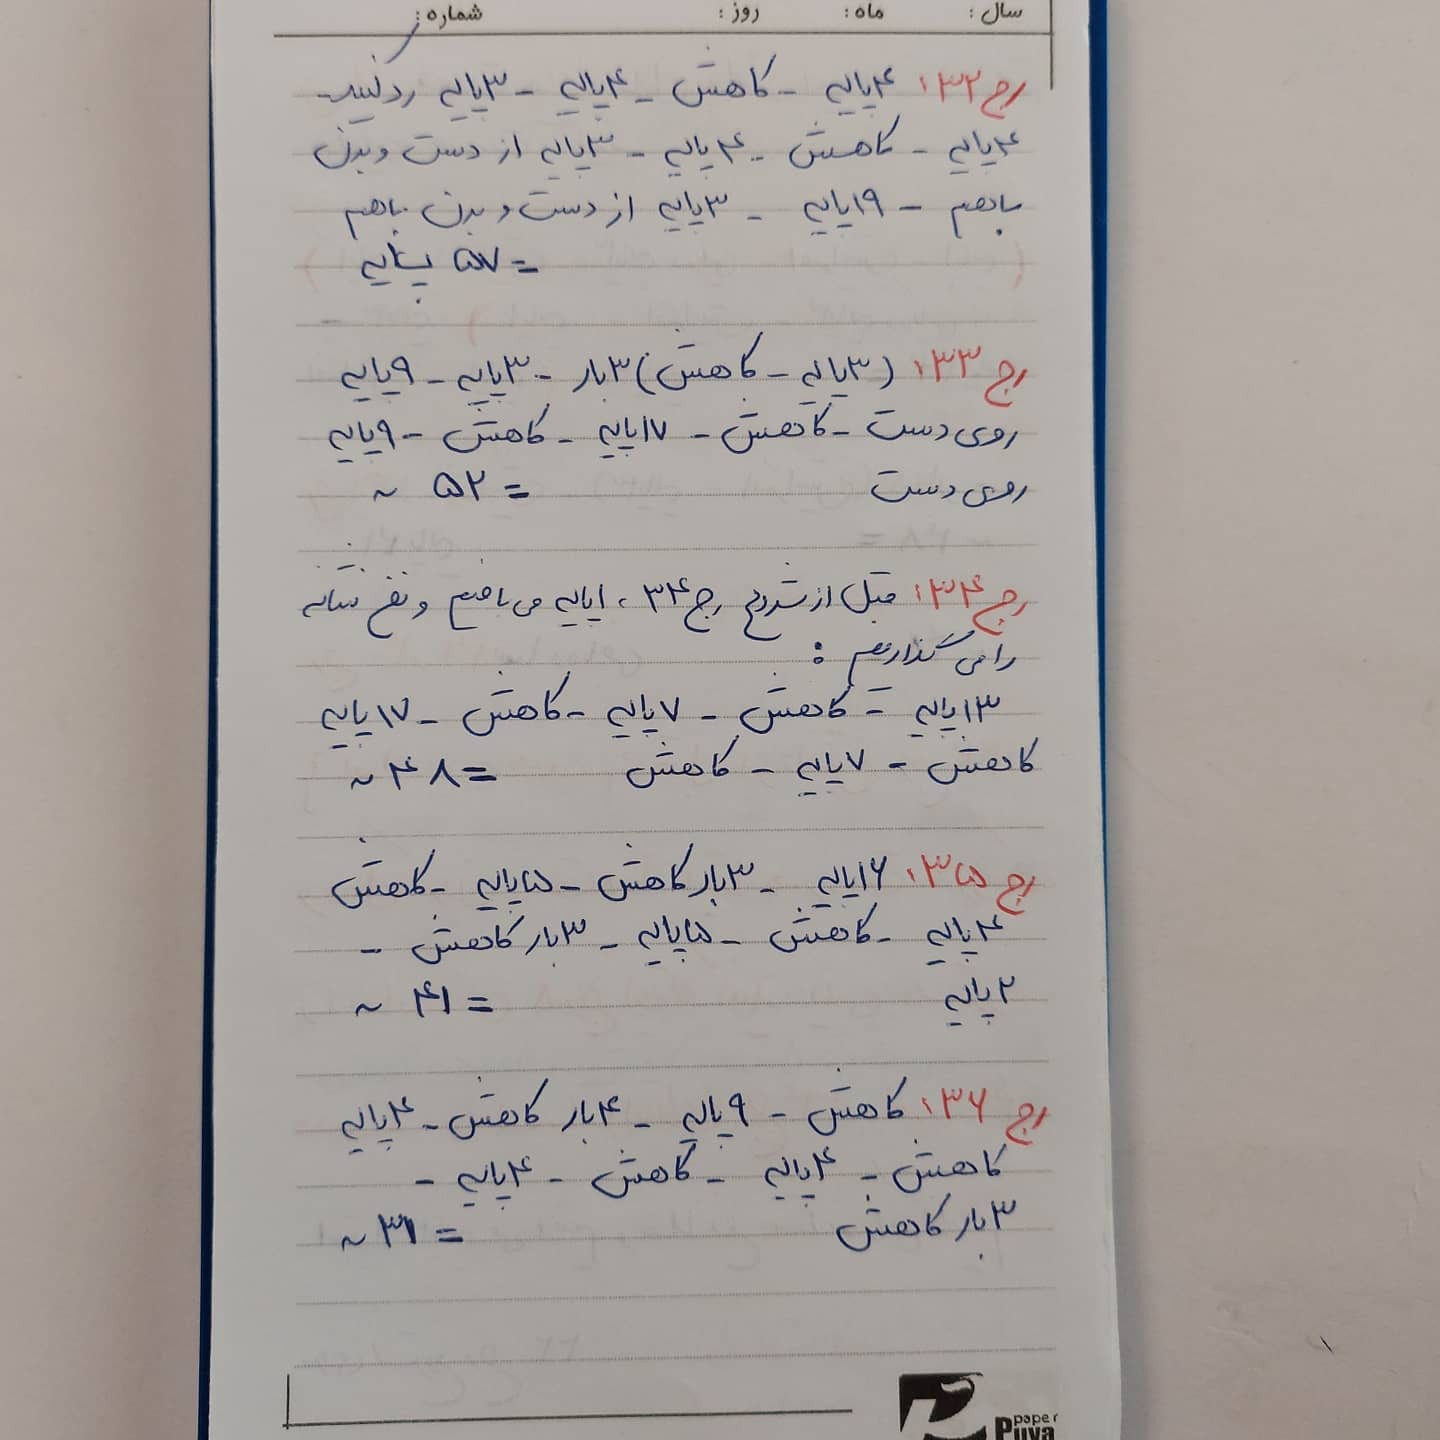 سال : ماه : روز : شماره :
رج ۳۲: ۴پایه - کاهش - ۴پایه - ۳پایه رد کنید -
۴پایه - کاهش - ۴پایه - ۳پایه از دست و بدن
باهم - ۱۹پایه - ۳پایه از دست و بدن باهم
= ۵۷
رج ۳۳: (۳پایه - کاهش) ۳بار - ۳پایه - ۹پایه
روی دست - کاهش - ۱۷پایه - کاهش - ۹پایه
روی دست = ۵۲ ~
رج ۳۴: قبل از شروع رج ۳۴، ۱پایه می بافیم و نخ نشانه
را می گذاریم :
۱۳پایه - کاهش - ۷پایه - کاهش - ۱۷پایه
کاهش - ۷پایه - کاهش = ۴۸ ~
رج ۳۵: ۱۶پایه - ۳بار کاهش - ۵پایه - کاهش
۴پایه - کاهش - ۵پایه - ۳بار کاهش -
۲پایه = ۴۱ ~
رج ۳۶: کاهش - ۹پایه - ۴بار کاهش - ۴پایه
کاهش - ۴پایه - کاهش - ۴پایه -
۳بار کاهش = ۳۱ ~
paper
Puya